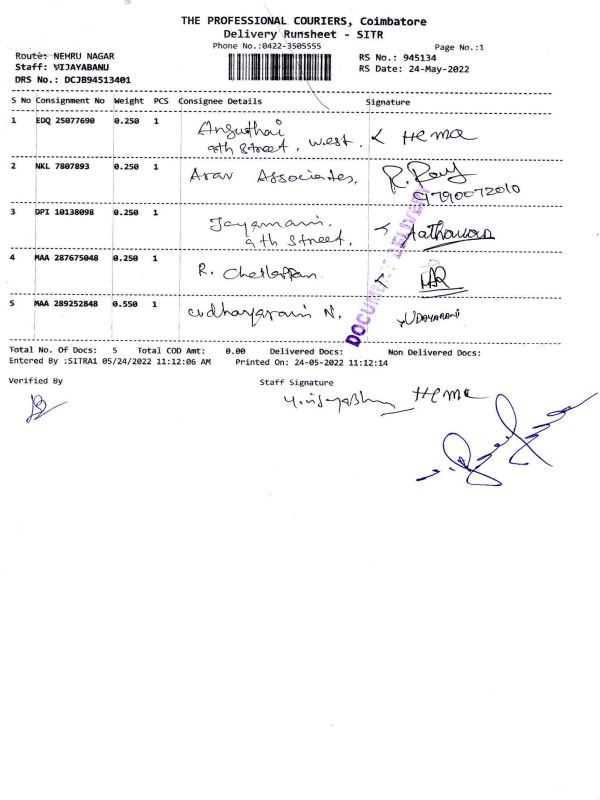 THE PROFESSIONAL COURIERS, Coimbatore
Delivery Runsheet - SITR
Phone No.:0422-3505555
Page No.:1
Route: NEHRU NAGAR
RS No.: 945134
Staff: VIJAYABANU
RS Date: 24-May-2022
DRS No.: DCJB94513401
S No Consignment No Weight PCS Consignee Details Signature
1 EDQ 25077690 0.250 1
9th Street, West. Hema
2 NKL 7807893 0.250 1 Arav Associates.
9790072010
3 DPI 10138098 0.250 1 Jayamani.
9th Street.
4 MAA 287675048 0.250 1 R. Chellappan.
5 MAA 289252848 0.550 1 Udhayarani N. UDAYARANI
DOCUMENT DELIVERY
Total No. Of Docs: 5 Total COD Amt: 0.00 Delivered Docs: Non Delivered Docs:
Entered By :SITRA1 05/24/2022 11:12:06 AM Printed On: 24-05-2022 11:12:14
Verified By Staff Signature
Hema